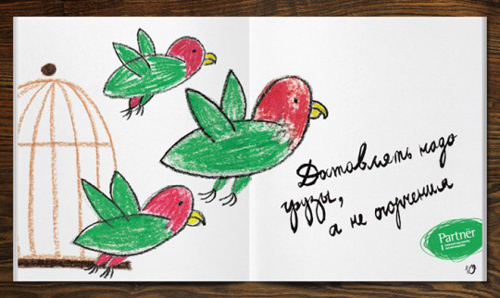 Доставлять надо
грузы,
а не огорчения
Partnёr
10